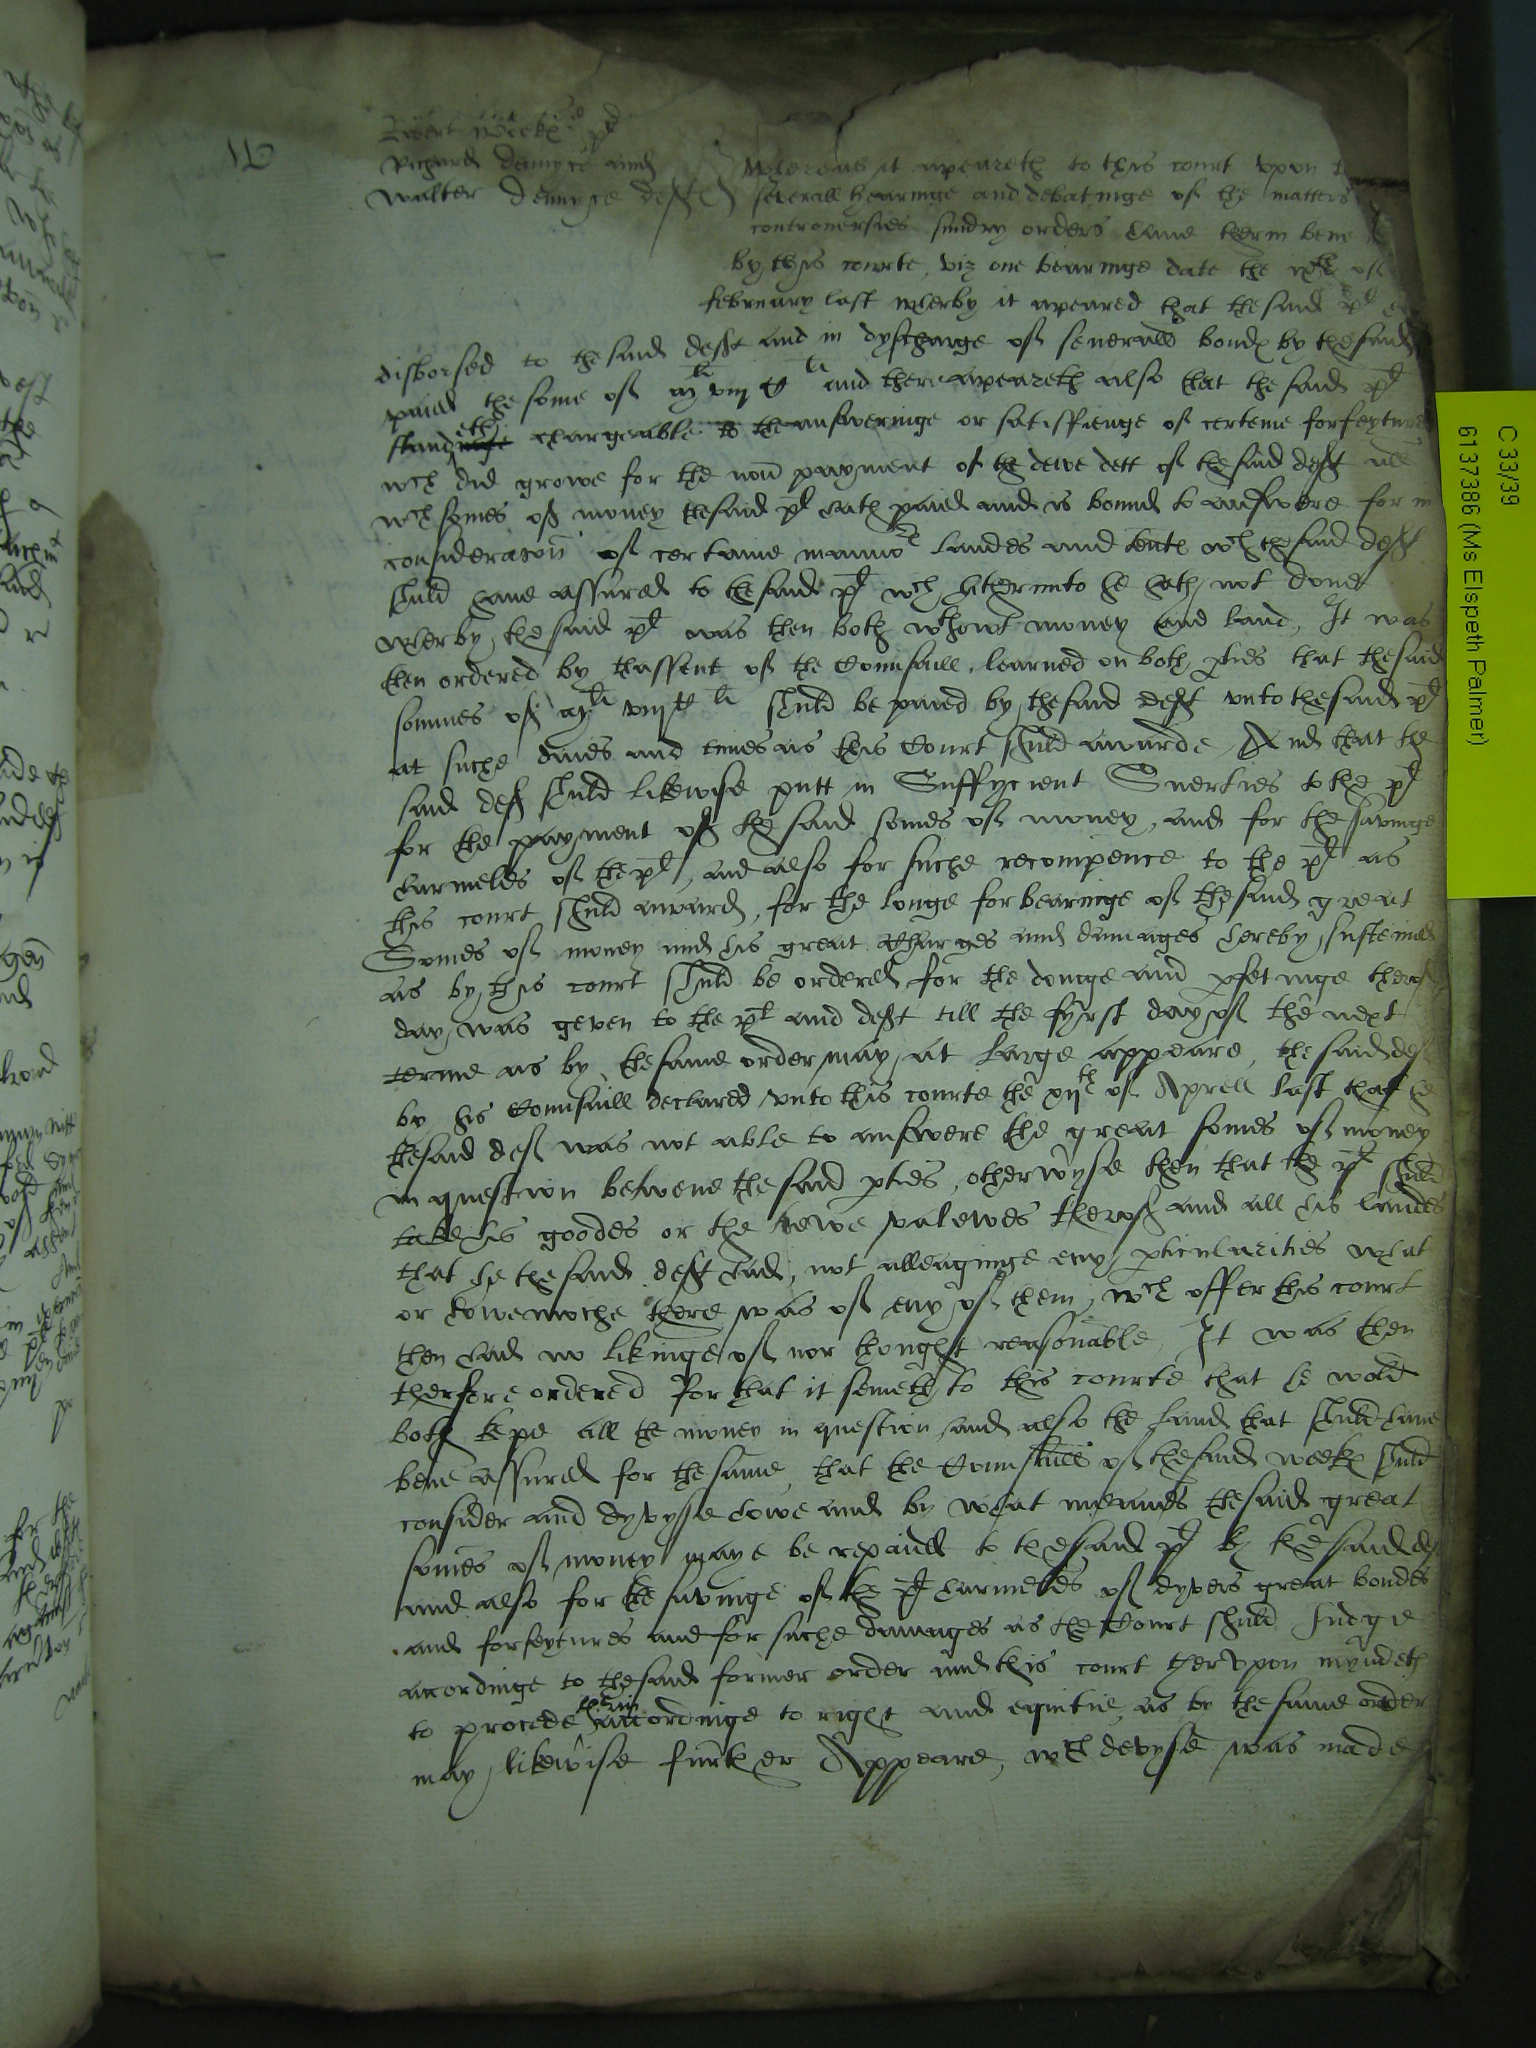 Robert Weekes pl
Richard Dennyce and
Walter Dennyse defts
Whereas it apeareth to this court vpon
severall hearinge and debatinge of the matters
controuersies sundry orders haue therin bene
by this courte, viz one bearinge date the of
february last wherby it apeared that the said pl
disborsed to the said deft and in dyscharge of seuerall bondes by the said
paied the some of and there apeareth also that the said pl
standeth chargeable to the answeringe or satisfienge of certeine forfeytures
wch did growe for the non payment of the dewe dett of the said deft all
wch somes of money the said pl hath paied and is bound to answere for in
consideracon of certaine mannors landes and wch the said deft
shuld haue assured to the said pl wch hitherunto he hath not done
wherby the said pl was then both wthowt money and land, It was
then ordered by thassent of the Counsaill learned on both pties that the said
sommes of shuld be paied by the said deft vnto the said pl
at suche daies and times as this Court shuld awarde, And that the
said deft shuld likewise putt in Suffycient Suerties to the pl
for the payment of the said somes of money, and for the savinge
harmeles of the pl, and also for suche recompence to the pl as
this court shuld award, for the longe forbearinge of the said great
Somes of money and his great charges and damages hereby susteined
as by this court shuld be ordered for the doinge and pfetinge therof
day was geven to the pl and deft till the fyrst day of the next
terme as by the same order may at large appeare, the said deft
by his Counsaill declared vnto this courte the xijth of Aprell last that he
the said deft was not able to answere the great somes of money
in question betwene the said pties, otherwyse then that the pl shuld
take his goodes or the dewe valewes therof and all his landes
that he the said deft had, not alleaginge eny pticularities what
or howemoche there was of eny of them, wch offer this court
then had no likinge of nor thought reasonable, It was then
therfore ordered for that it semeth to this courte that he wold
both kepe all the money in question and also the land that shuld haue
bene assured for the same, that the Counsaill of the said weekes shuld
consider and dyvysse howe and by what meanes the said great
somes of money maye be repaied to the said pl by the said deft
and also for the savinge of the pl harmeles of dyvers great bondes
and forfeytures and for suche damages as the Court shuld Iudge
acordinge to the said former order and this court thervpon myndeth
to procede therin accordinge to right and equitie, as by the same order
may likewise further Appeare, wch devyse was made
C 33/39
6137386 (Ms Elspeth Palmer)